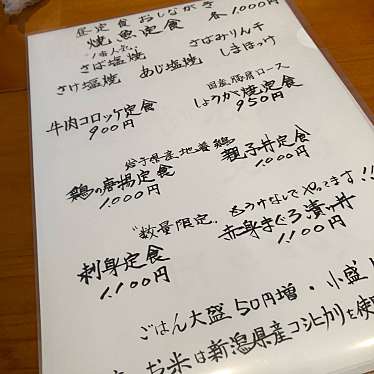 昼定食 おしながき
焼魚定食 各1,000円
1番人気!
さば塩焼 さばみりん干
さけ塩焼 あじ塩焼 しまほっけ
国産豚肩ロース
牛肉コロッケ定食 しょうが焼定食
900円 950円
岩手県産地養鶏
鶏の唐揚定食 親子丼定食
1,000円 1,000円
数量限定 もうけなしでやってます!!
刺身定食 赤身まぐろ漬け丼
1,100円 1,100円
ごはん大盛50円増・小盛
お米は新潟県産コシヒカリを使用